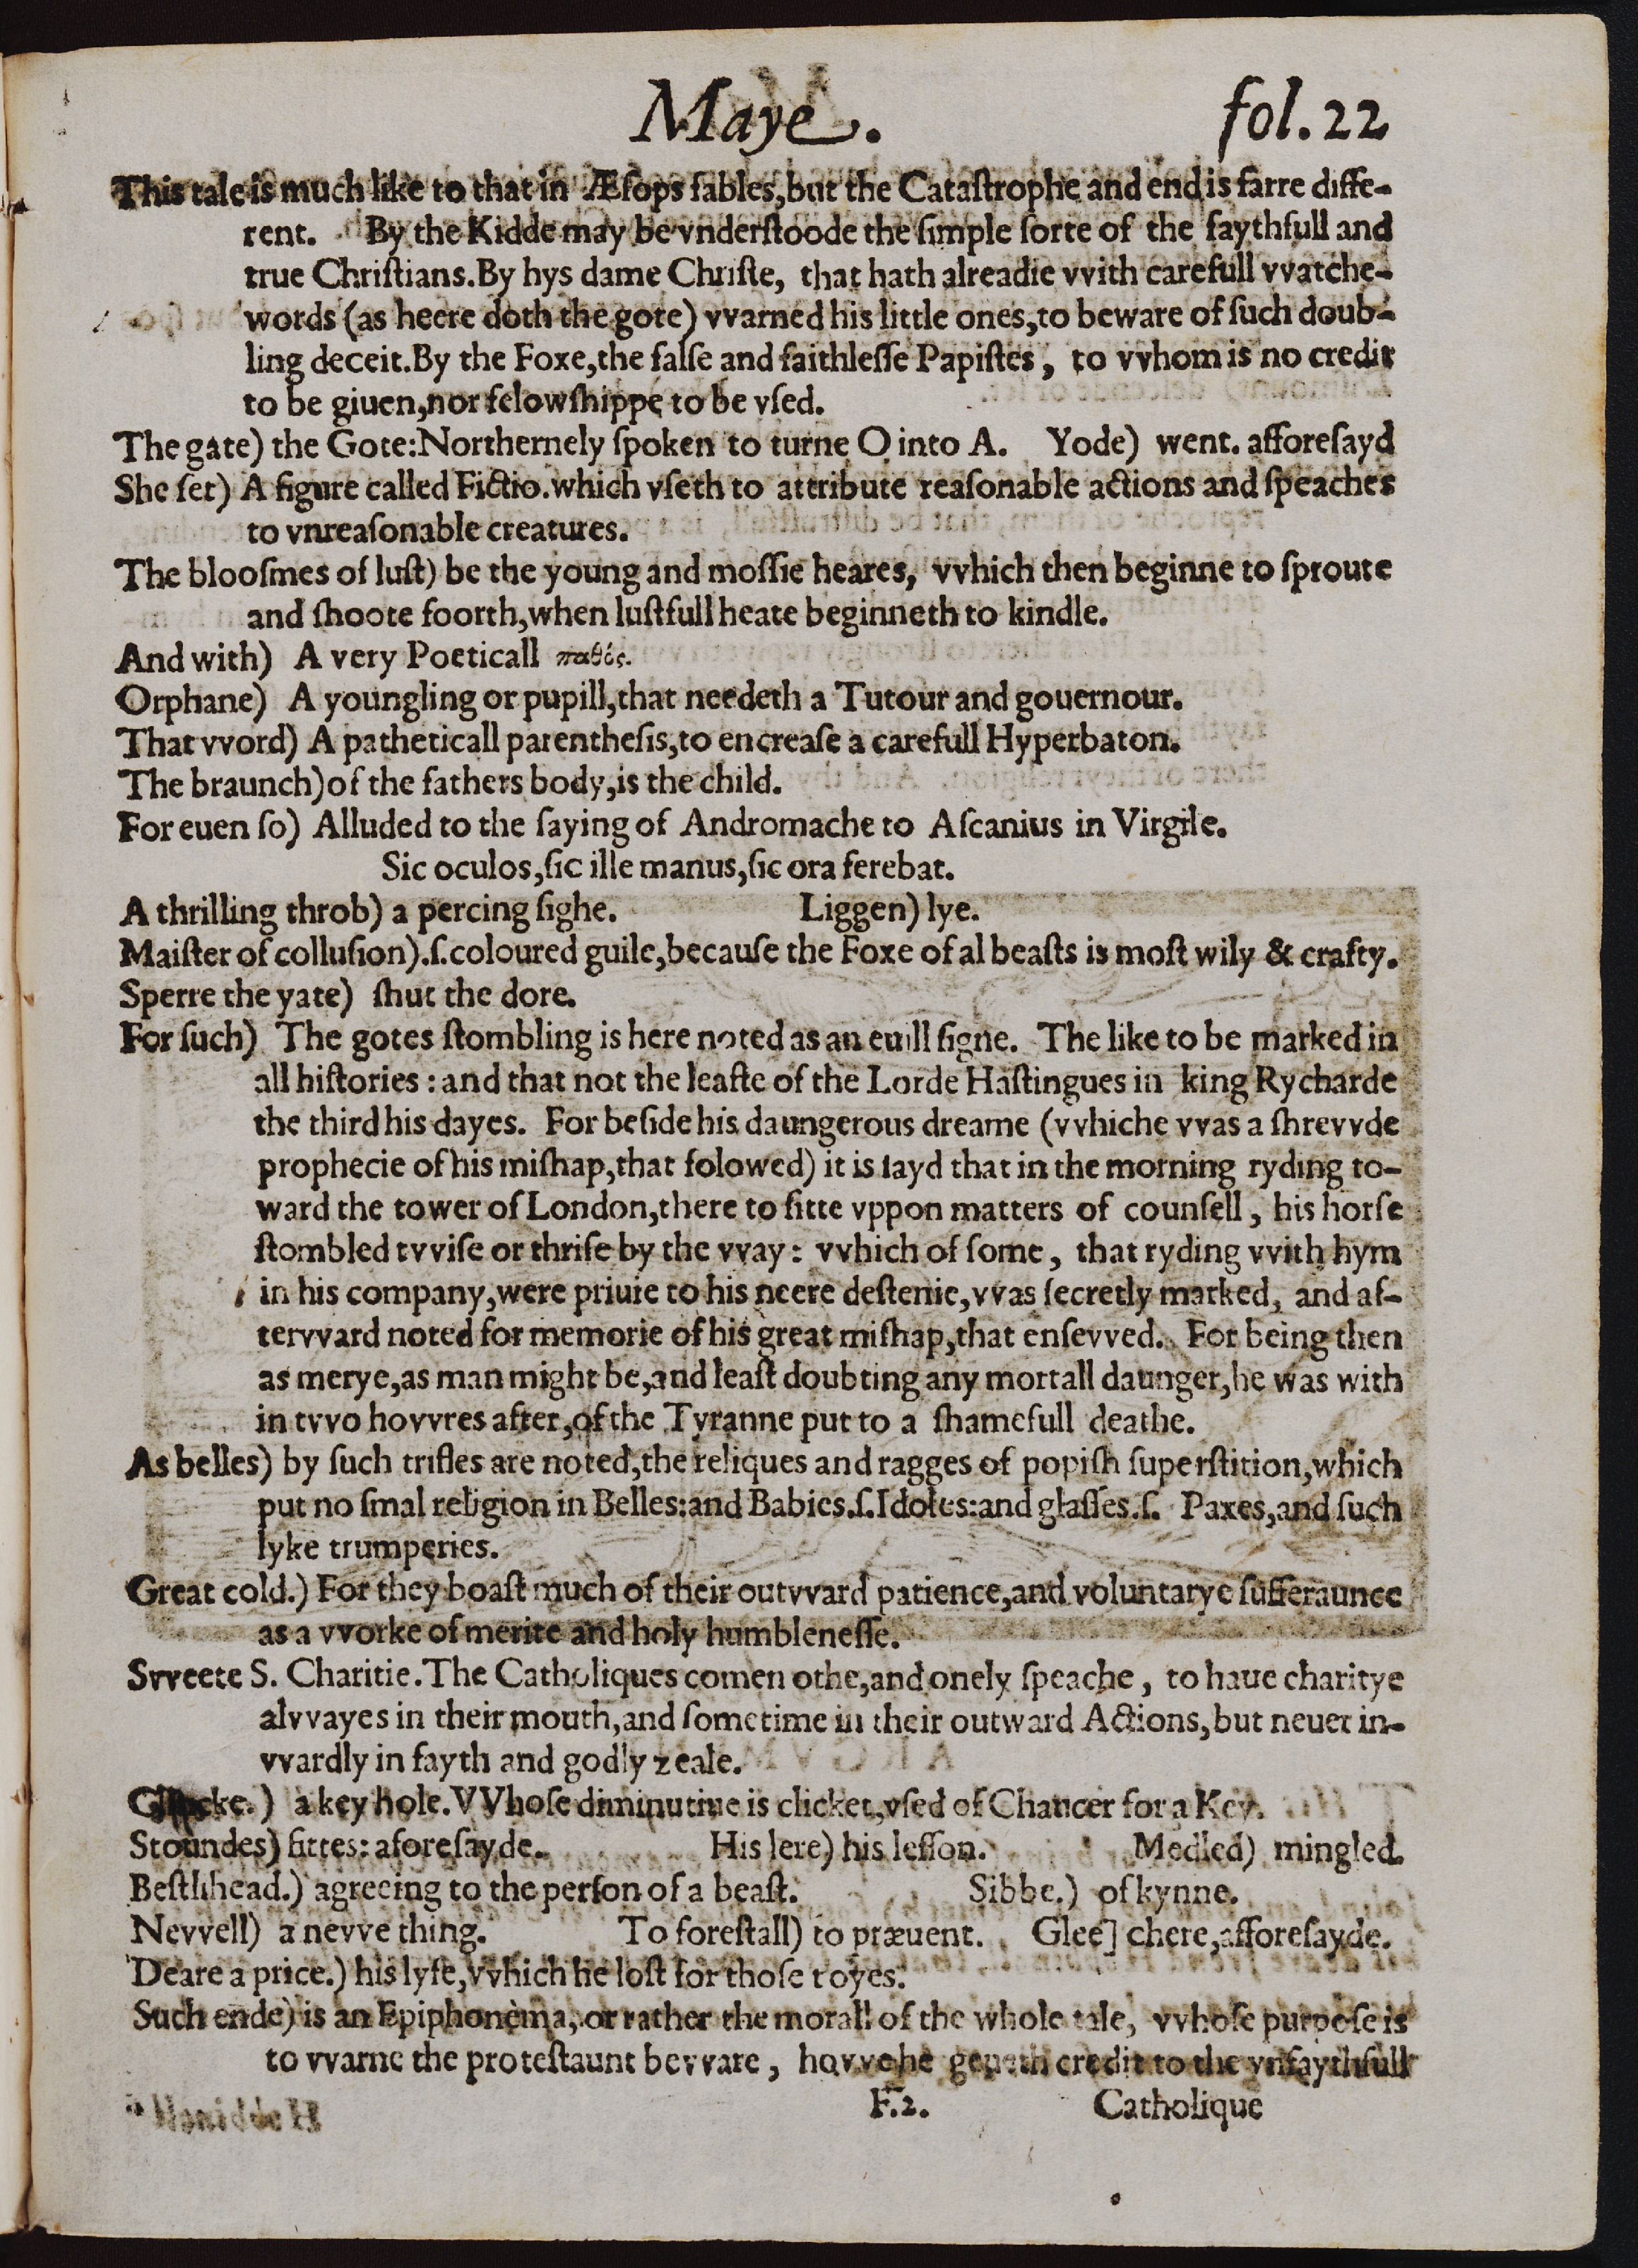 Maye. fol. 22
This tale is much like to that in Æſops fables, but the Cataſtrophe and end is farre diffe-
rent. By the Kidde may be vnderſtoode the ſimple ſorte of the faythfull and
true Chriſtians. By hys dame Chriſte, that hath alreadie vvith carefull vvatche-
words (as heere doth the gote) vvarned his little ones, to beware of ſuch doub-
ling deceit. By the Foxe, the falſe and faithleſſe Papiſtes, to vvhom is no credit
to be giuen, nor felowſhippe to be vſed.
The gate) the Gote: Northernely ſpoken to turne O into A. Yode) went. afforeſayd
She ſet) A figure called Fictio. which vſeth to attribute reaſonable actions and ſpeaches
to vnreaſonable creatures.
The blooſmes of luſt) be the young and moſſie heares, vvhich then beginne to ſproute
and ſhoote foorth, when luſtfull heate beginneth to kindle.
And with) A very Poeticall παθός.
Orphane) A youngling or pupill, that needeth a Tutour and gouernour.
That vvord) A patheticall parentheſis, to encreaſe a carefull Hyperbaton.
The braunch) of the fathers body, is the child.
For euen ſo) Alluded to the ſaying of Andromache to Aſcanius in Virgile.
Sic oculos, ſic ille manus, ſic ora ferebat.
A thrilling throb) a percing ſighe. Liggen) lye.
Maiſter of colluſion).ſ. coloured guile, becauſe the Foxe of al beaſts is moſt wily & crafty.
Sperre the yate) ſhut the dore.
For ſuch) The gotes ſtombling is here noted as an euill ſigne. The like to be marked in
all hiſtories: and that not the leaſte of the Lorde Haſtingues in king Rycharde
the third his dayes. For beſide his daungerous dreame (vvhiche vvas a ſhrevvde
prophecie of his miſhap, that folowed) it is ſayd that in the morning ryding to-
ward the tower of London, there to ſitte vppon matters of counſell, his horſe
ſtombled tvviſe or thriſe by the vvay: vvhich of ſome, that ryding vvith hym
in his company, were priuie to his neere deſtenie, vvas ſecretly marked, and af-
tervvard noted for memorie of his great miſhap, that enſevved. For being then
as merye, as man might be, and leaſt doubting any mortall daunger, he was with
in tvvo hovvres after, of the Tyranne put to a ſhamefull deathe.
As belles) by ſuch trifles are noted, the reliques and ragges of popiſh ſuperſtition, which
put no ſmal religion in Belles: and Babies.ſ. Idoles: and glaſſes.ſ. Paxes, and ſuch
lyke trumperies.
Great cold.) For they boaſt much of their outvvard patience, and voluntarye ſufferaunce
as a vvorke of merite and holy humbleneſſe.
Svveete S. Charitie. The Catholiques comen othe, and onely ſpeache, to haue charitye
alvvayes in their mouth, and ſometime in their outward Actions, but neuer in-
vvardly in fayth and godly zeale.
a key hole. VVhoſe diminutiue is clicket, vſed of Chaucer for a Key.
Stoundes) fittes: aforeſayde. His lere) his leſſon. Medled) mingled.
Beſtlihead.) agreeing to the perſon of a beaſt. Sibbe.) of kynne.
Nevvell) a nevve thing. To foreſtall) to præuent. Glee] chere, afforeſayde.
Deare a price.) his lyfe, vvhich he loſt for thoſe toyes.
Such ende) is an Epiphonèma, or rather the morall of the whole tale, vvhoſe purpoſe is
to vvarne the proteſtaunt bevvare, hovve he geueth credit to the vnfaythfull
F.2. Catholique